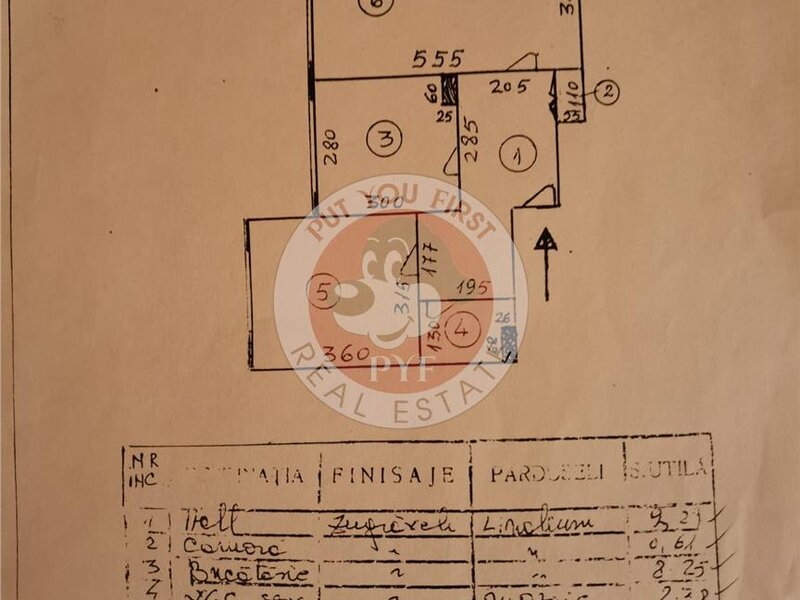 6
555
205
60
25
110
25
2
280
3
285
1
300
PUT YOU FIRST
177
5
315
195
26
130
4
60
360
PYF
REAL ESTATE
NR
INC
FINISAJE PARDOSELI S.UTILĂ
1 Holl Zugrăveli Linoleum 9.21
2 Camera " " 0,61
3 Bucătărie " " 8.25
4 " 2.38